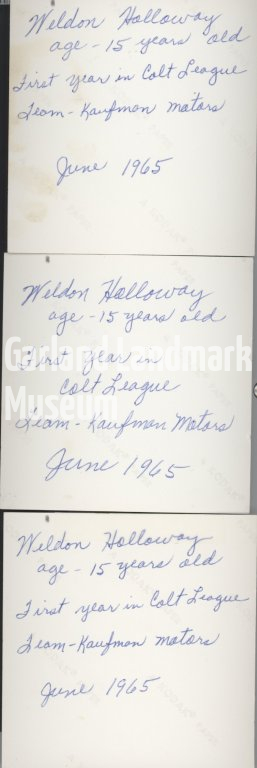 Weldon Holloway
age - 15 years old
First year in Colt League
Team - Kaufman motors
June 1965
Weldon Holloway
age - 15 years old
Garland Landmark
First year in
Colt League
Museum
Team - Kaufman Motors
June 1965
Weldon Holloway
age - 15 years old
First year in Colt League
Team - Kaufman motors
June 1965